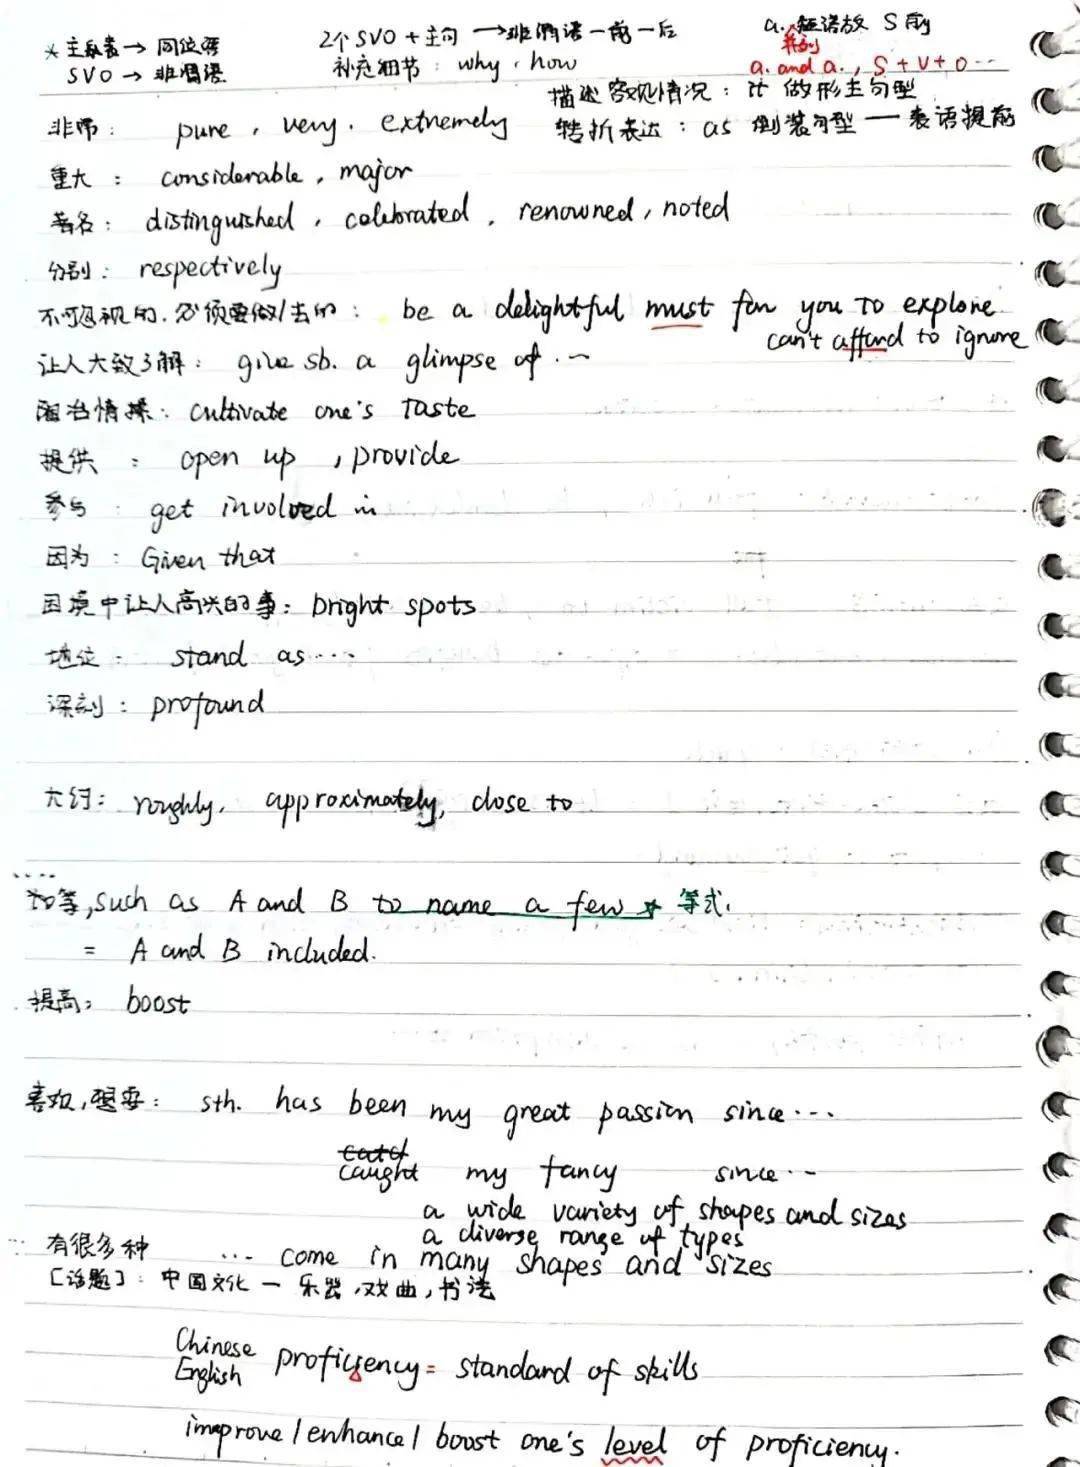 * 主系表→ 同位语
SVO → 非谓语
2个SVO + 主句 → 非谓语一前一后
补充细节: why, how
a. 短语放 S 前
并列
a. and a., S + V + O …
描述客观情况: it 做形主句型
转折表达: as 倒装句型 — 表语提前
非常: pure, very. extremely
重大: considerable, major
著名: distinguished, celebrated, renowned, noted
分别: respectively
不可忽视的. 必须要做/去的: be a delightful must for you to explore
can't afford to ignore
让人大致了解: give sb. a glimpse of …
陶冶情操: cultivate one's taste
提供: open up, provide
参与: get involved in
因为: Given that
困境中让人高兴的事: bright spots
地位: stand as…
深刻: profound
大约: roughly, approximately, close to
如等, such as A and B to name a few * 等式.
= A and B included.
提高: boost
喜欢, 想要: sth. has been my great passion since …
caught my fancy since …
a wide variety of shapes and sizes
a diverse range of types
有很多种 … come in many shapes and sizes
[话题]: 中国文化 — 乐器, 戏曲, 书法
Chinese
English proficiency = standard of skills
improve / enhance / boost one's level of proficiency.